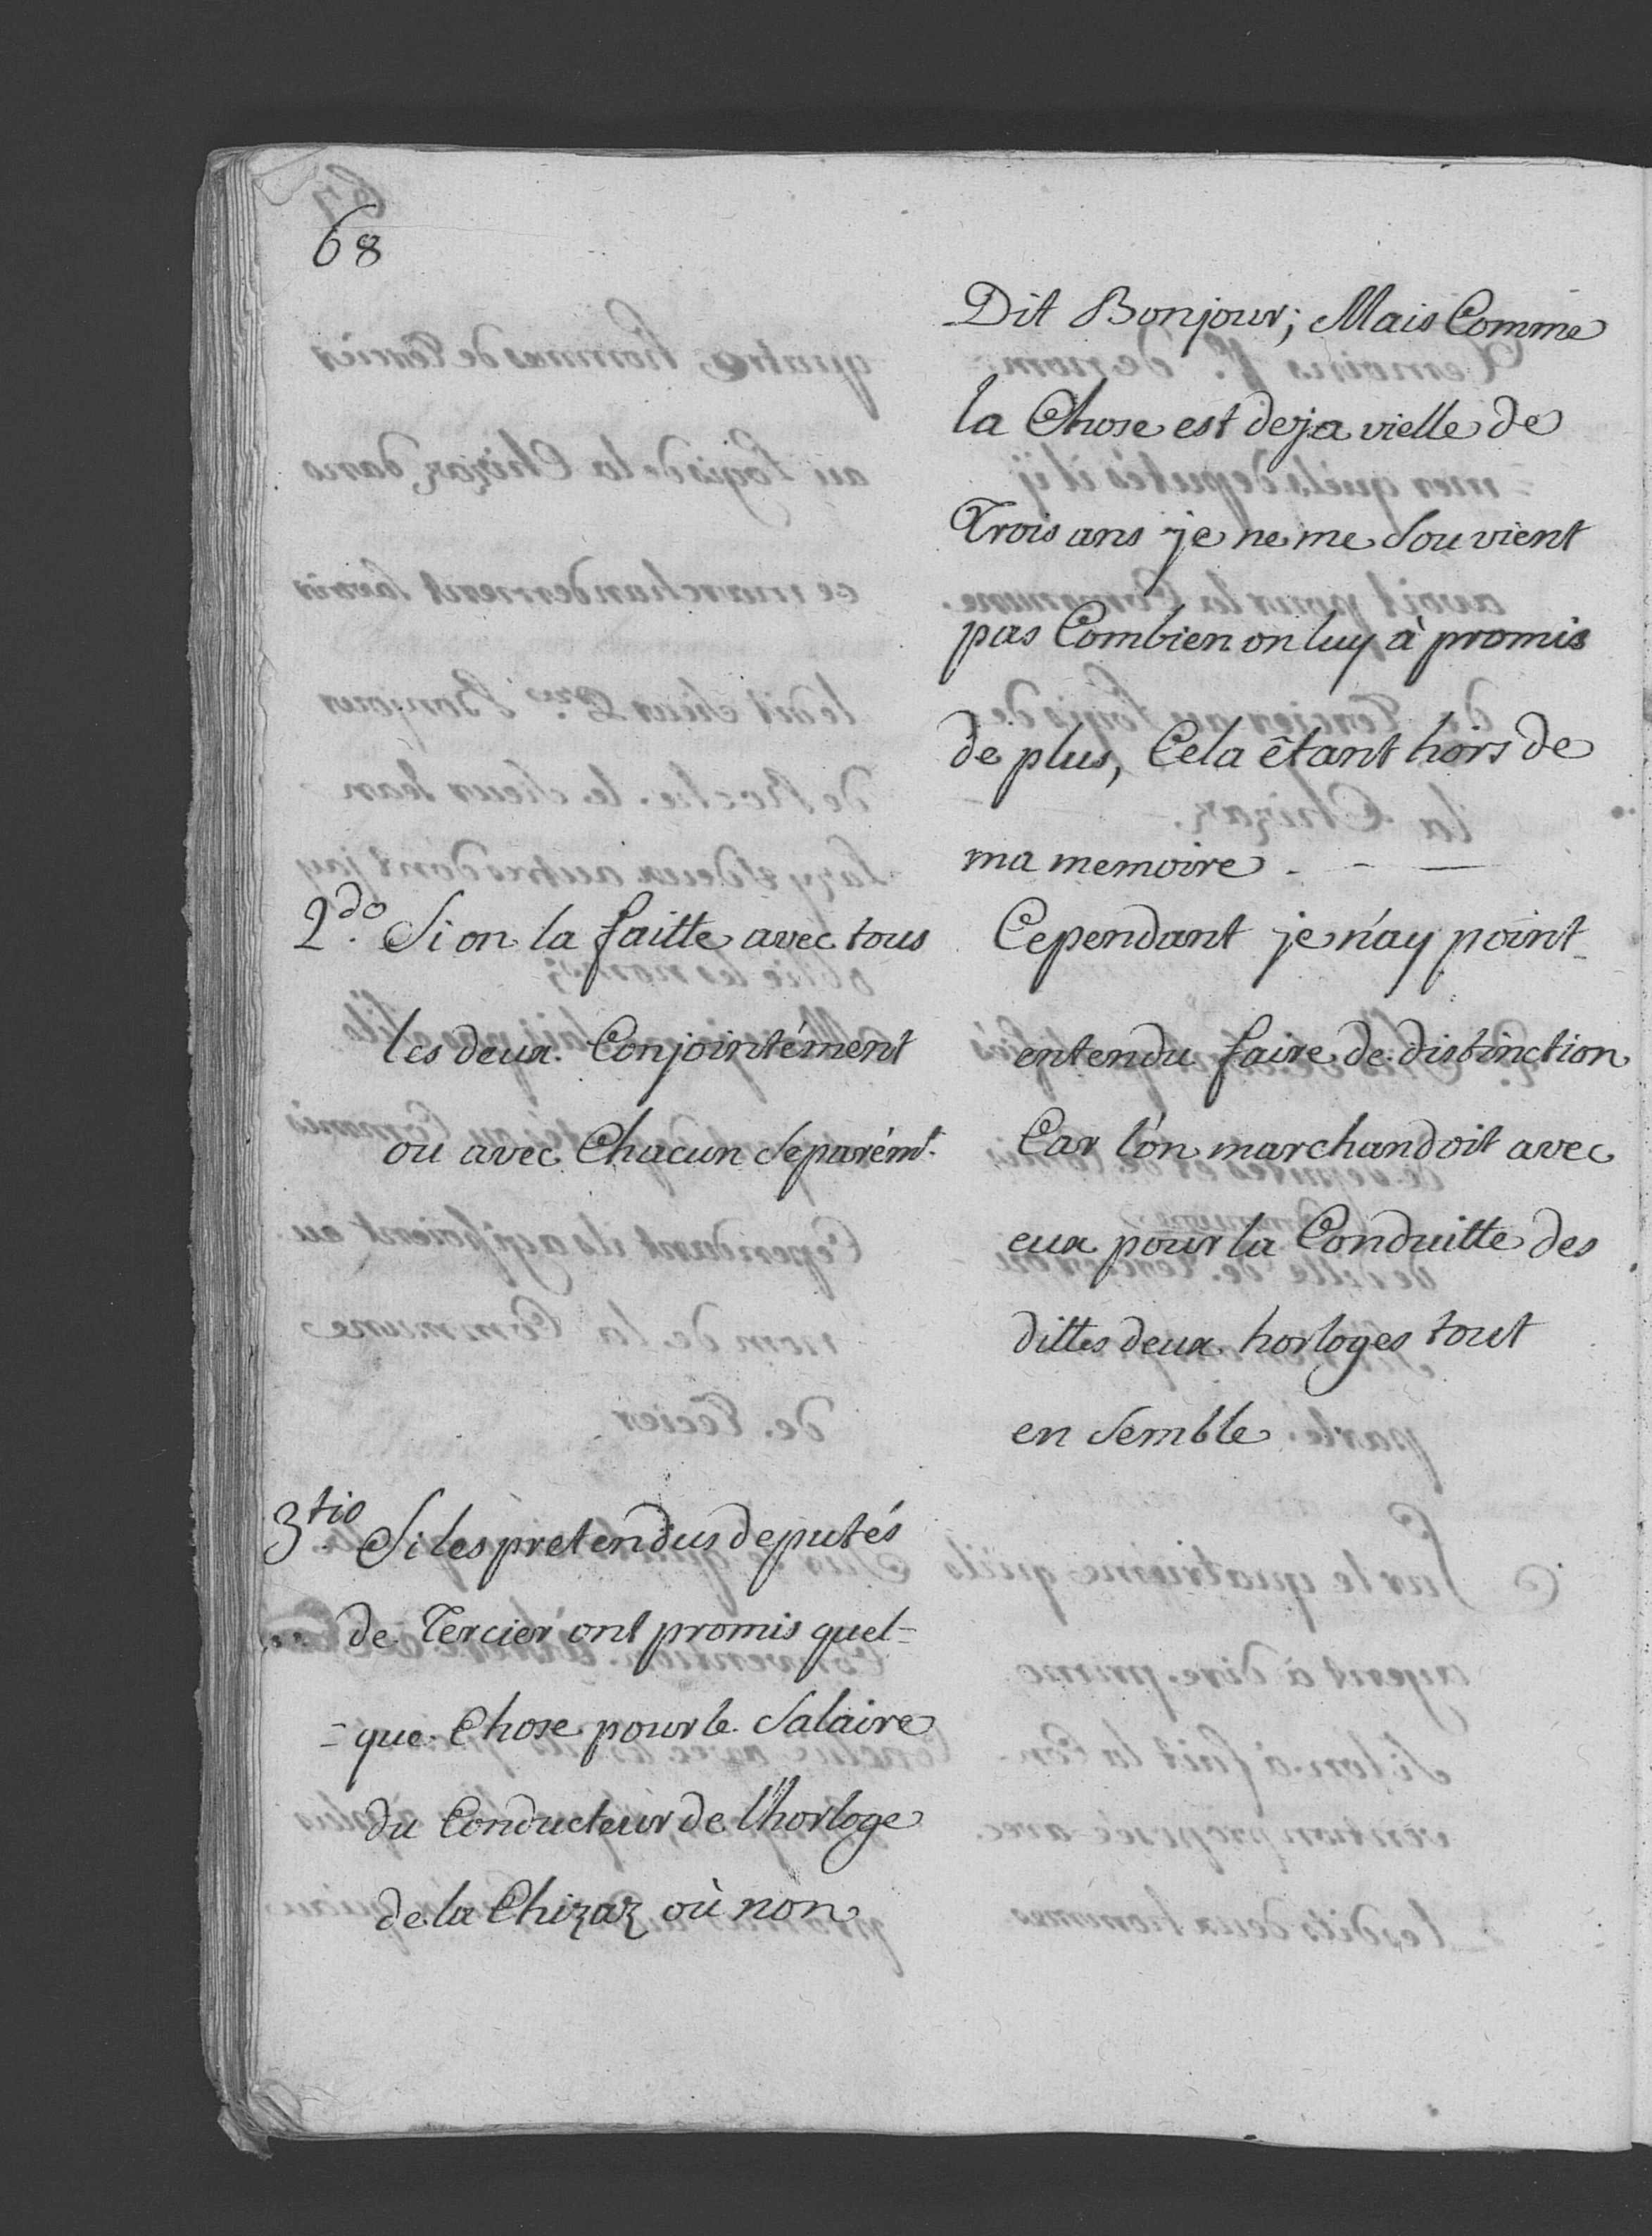 68
Dit Bonjour; Mais Comme
la Chose est deja vielle de
Trois ans je ne me Souvient
pas Combien on luy à promis
de plus, Cela êtant hors de
ma memoire . - —
2.do Si on la faitte avec tous
les deux Conjointément
ou avec Chacun Separémt.
Cependant je n'ay point
entendu faire de distinction
Car l'on marchandoit avec
eux pour la Conduitte des
dittes deux horloges tout
en Semble
3.tio Si les pretendus deputés
de Tercier ont promis quel=
=que Chose pour le Salaire
du Conducteur de l'horloge
de la Chizaz où non